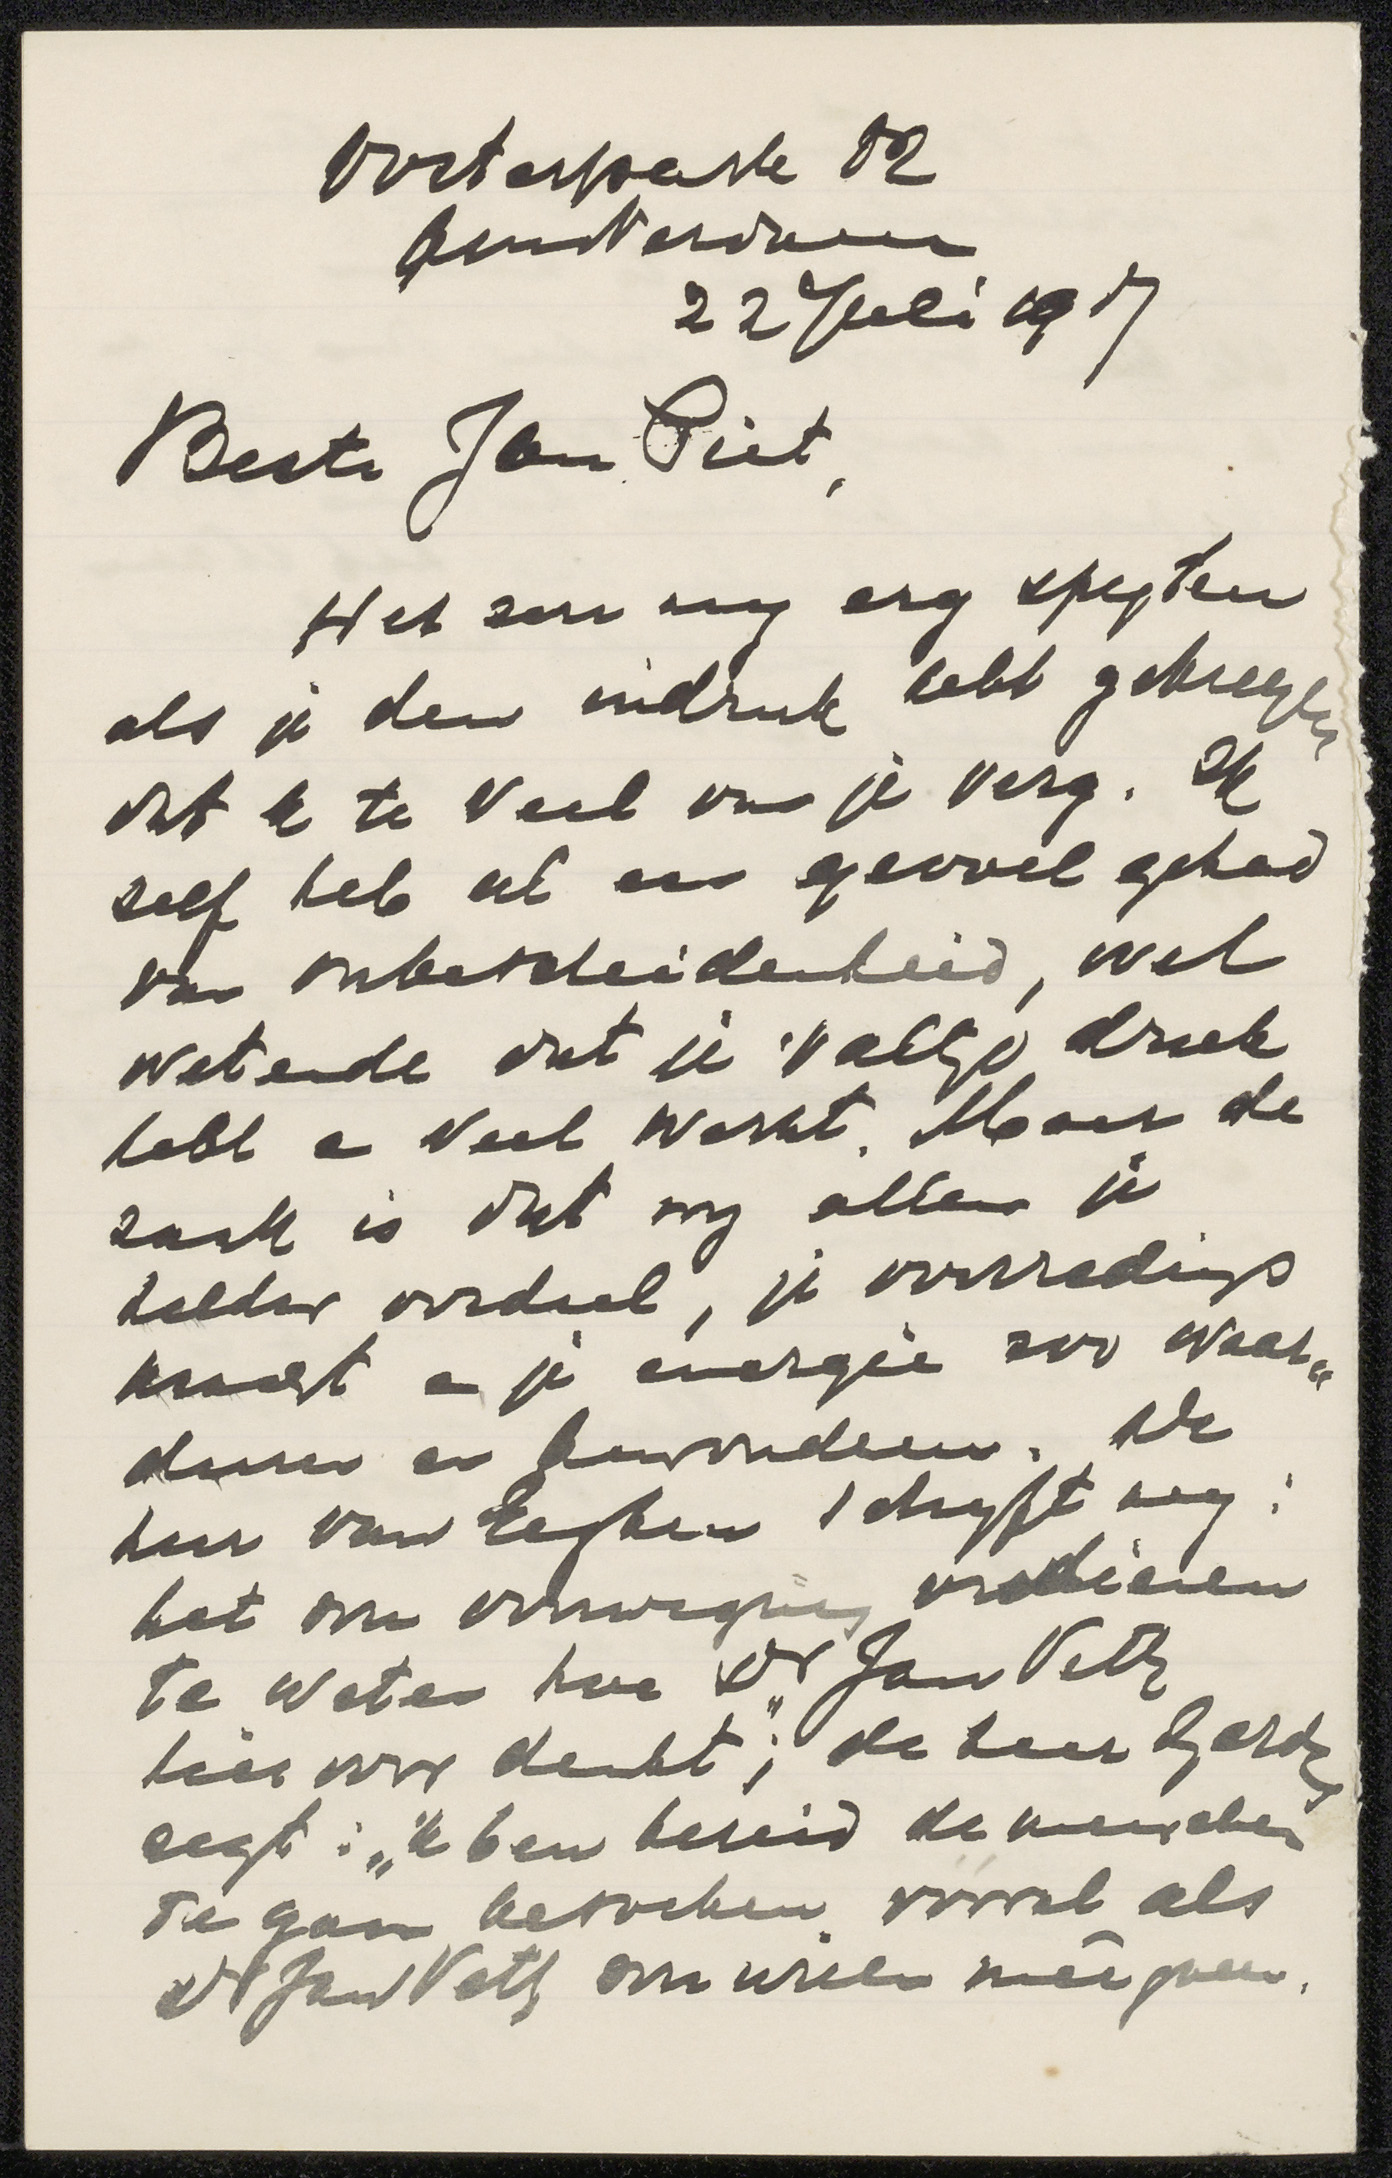 Oosterpark 82
Amsterdam
22 Juli 1917
Beste Jan Piet,
Het zou my erg spyten
als je den indruk hebt gekregen
dat ik te veel van je verg. Ik
zelf heb al een gevoel gehad
van onbescheidenheid, wel
wetende dat je 't altyd druk
hebt en veel werkt. Maar de
zaak is dat wy allen je
helder oordeel, je overredings
kracht en je energie zoo waar„
deeren en bewonderen. De
heer van Eeghen schryft my:
het zou overweging verdienen
te weten hoe Dr Jan Veth
hier over denkt"; de heer
zegt: „ik ben bereid de menschen
te gaan bezoeken vooral als
Dr Jan Veth zou willen meêgaan.